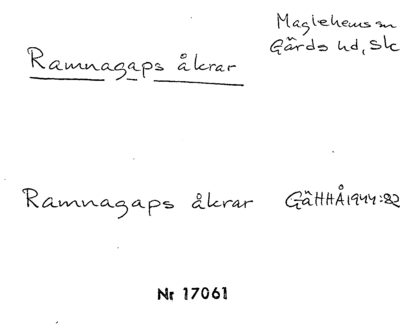 Maglehems sn
Gärds hd, Sk
Ramnagaps åkrar
Ramnagaps åkrar GäHHÅ 1944:82
Nr 17061